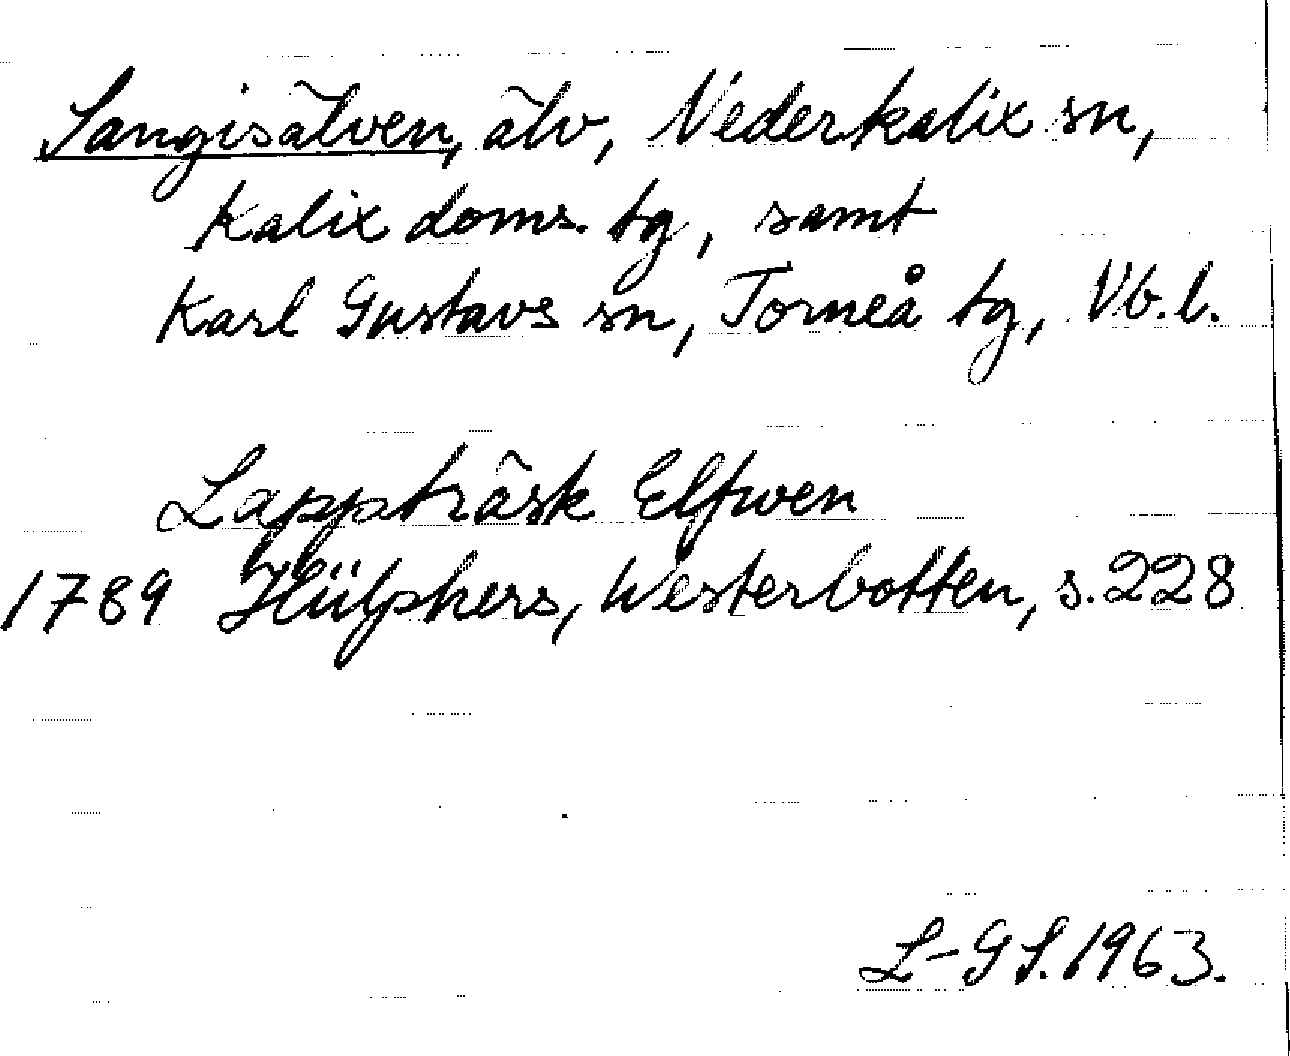 Sangisälven, älv, Nederkalix sn,
Kalix doms. tg, samt
Karl Gustavs sn, Torneå tg, Vb. l.
Lappträsk Elfwen
1789 Hülphers, Westerbotten, s. 228
L-G S. 1963.